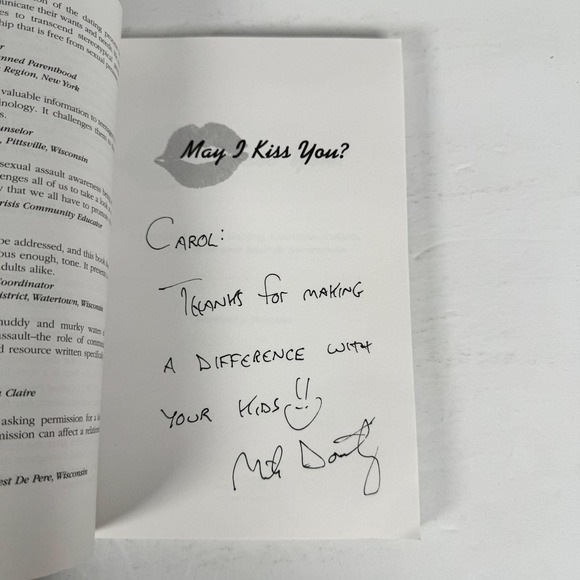 on of the dating
unicate their wants and needs
es to transcend stereotypical
ship that is free from sexual
nned Parenthood
Region, New York
valuable information to
nology. It challenges
s.
unselor
, Pittsville, Wisconsin
sexual assault awareness
enges all of us to take a look
y that we all have to
risis Community Educator
be addressed, and this book
ous enough, tone. It
dults alike.
oordinator
istrict, Watertown, Wisconsin
nuddy and murky waters
assault–the role of
d resource written
Claire
asking permission for a
mission can affect a
est De Pere, Wisconsin
May I Kiss You?
CAROL:
THANKS for MAKING
A DIFFERENCE WITH
YOUR KIDS!!